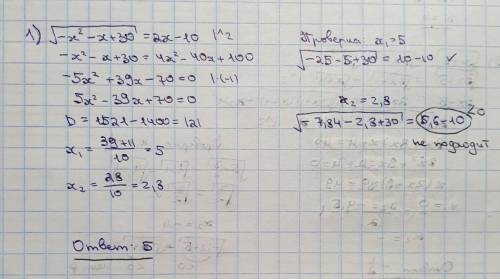 1) √-x²-x+30 = 2x-10 |^2
-x²-x+30 = 4x²-40x+100
-5x²+39x-70=0 |·(-1)
5x²-39x+70=0
D = 1521-1400=121
x₁ = 39+11/10 = 5
x₂ = 28/10 = 2,8
Ответ: 5
Проверка: x₁=5
√-25-5+30 = 10-10 ✓
x₂ = 2,8
√-7,84-2,8+30 = 5,6-10 <0
не подходит